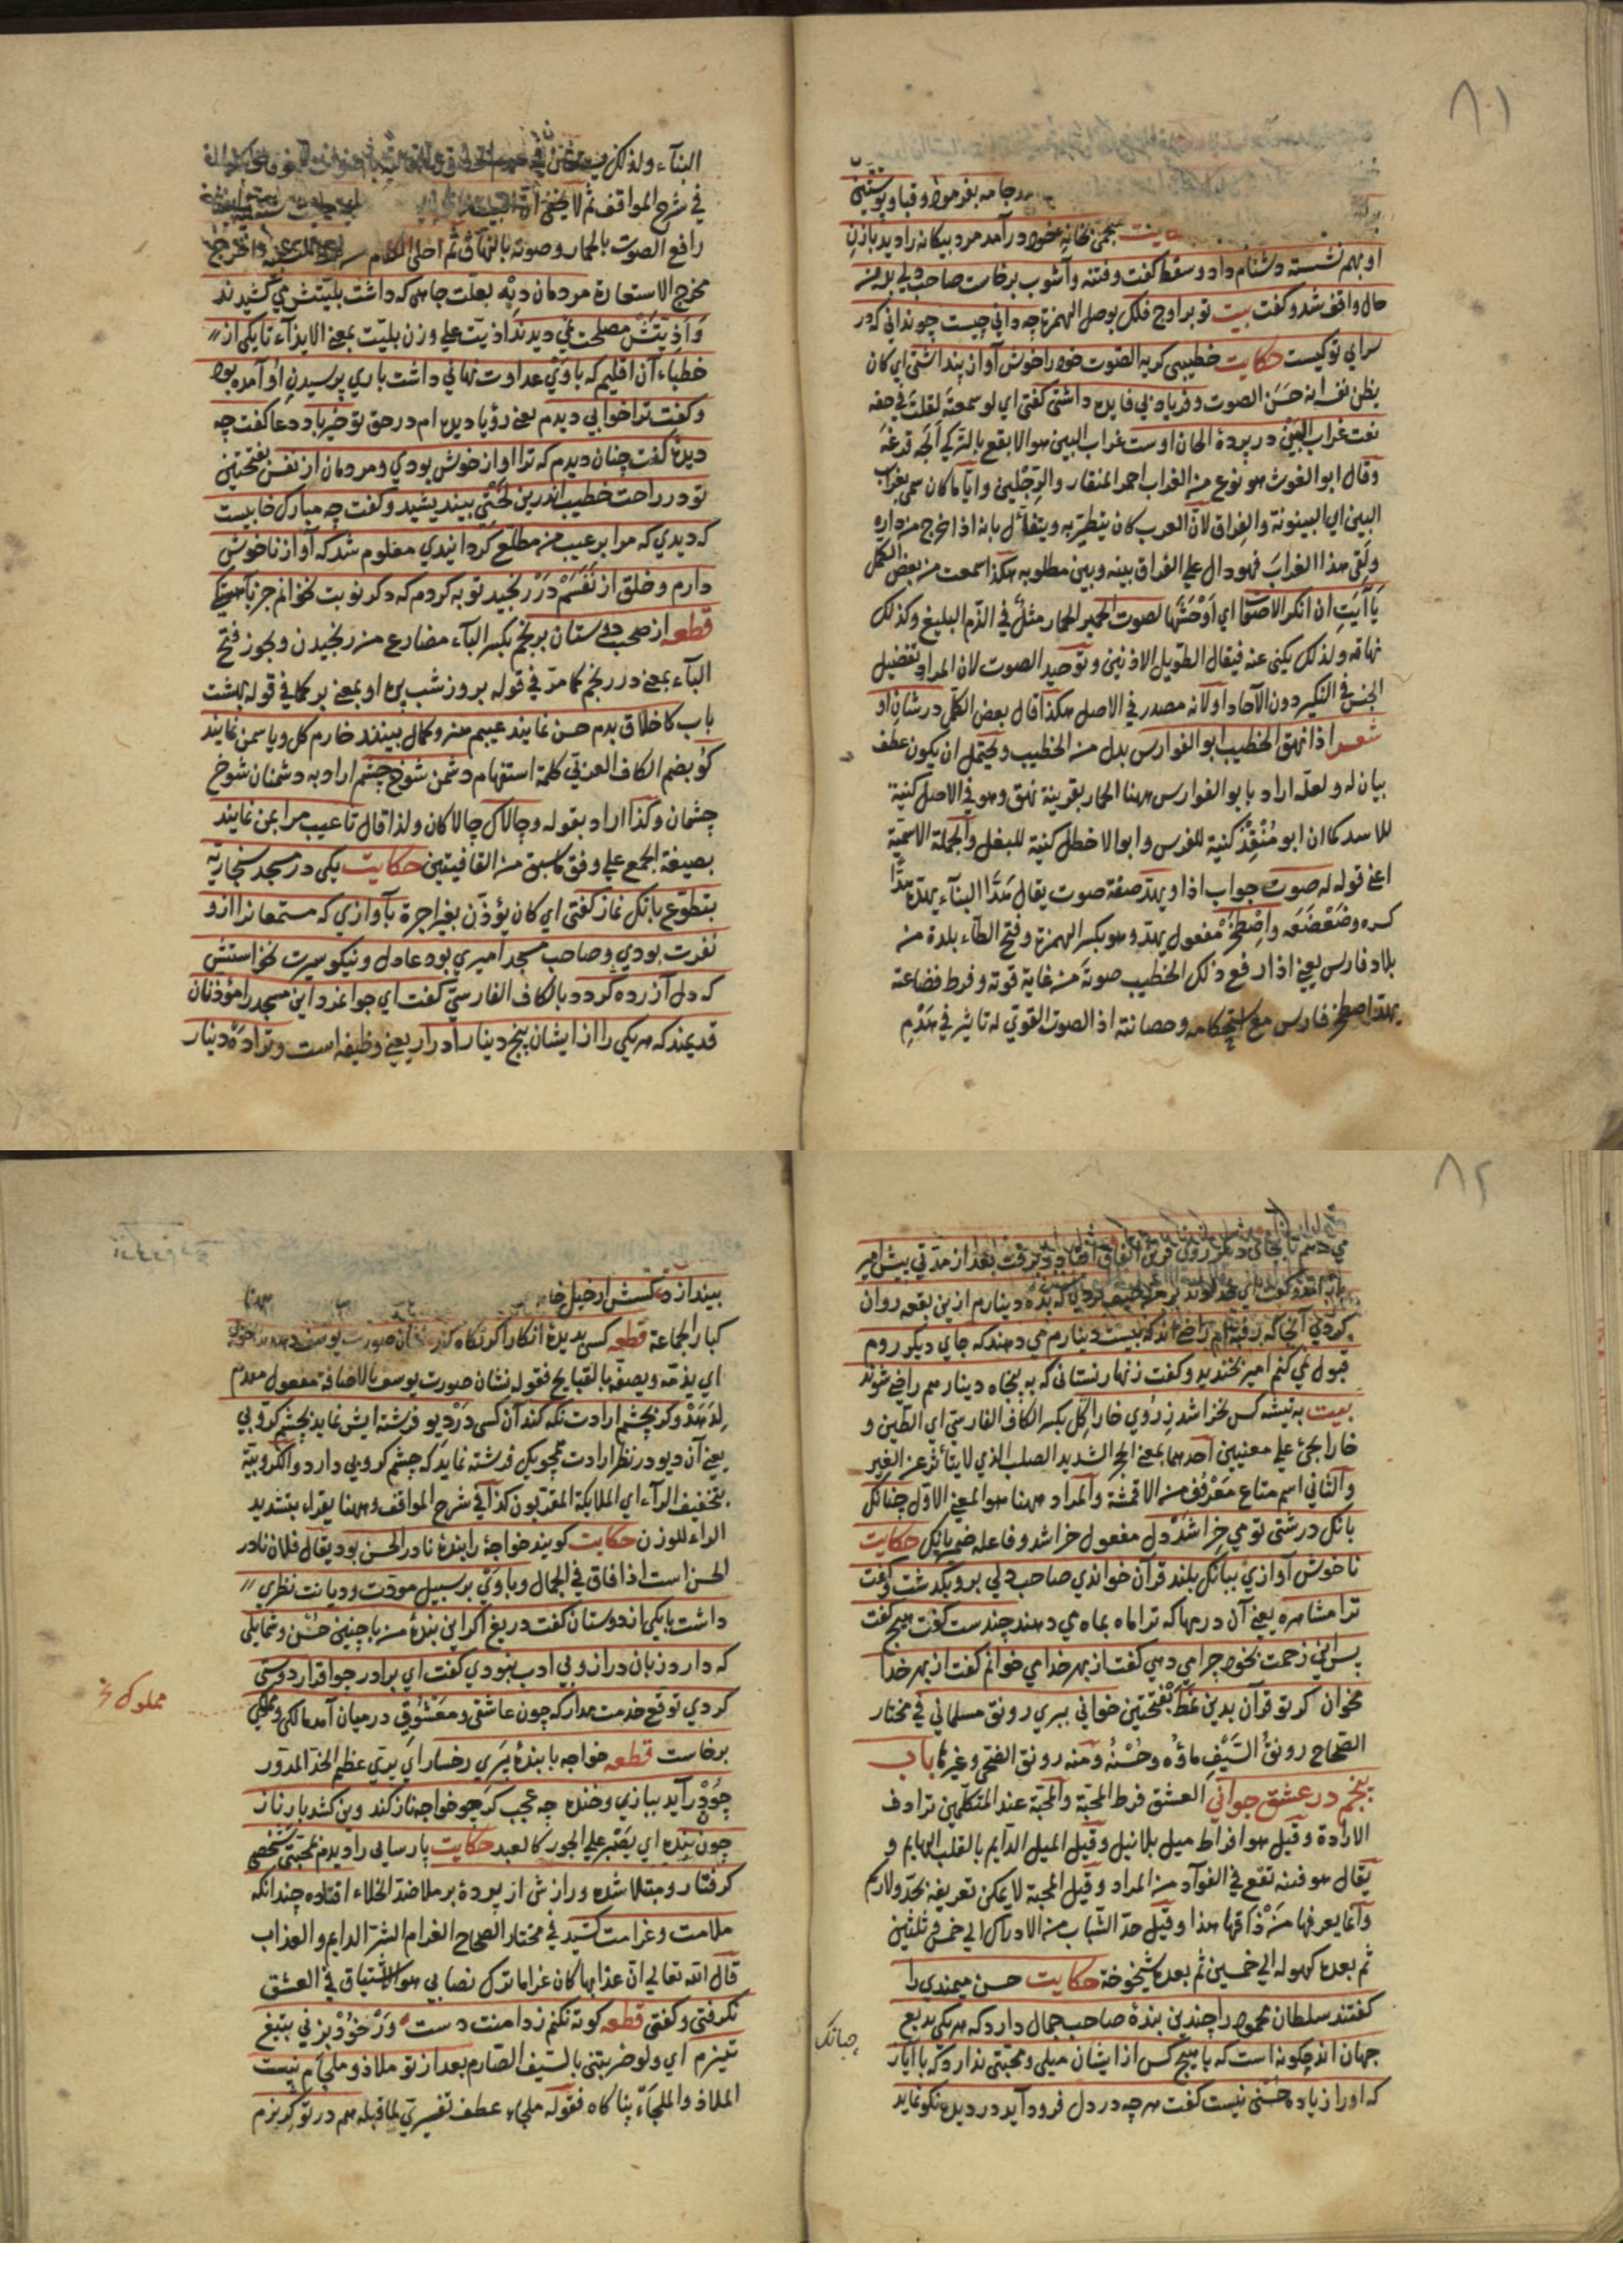 ٨١
جامه بفرمود وقبا وپوستینی
حکایت منجمی بخانهٔ خود درآمد مرد بیکانه را دید با زن
او بهم نشسته دشنام داد وسقط کفت وفتنه وآشوب برخاست صاحب دلی برین
حال واقف شد وکفت بیت تو بر اوج فلک بوصل الهمزة چه دانی چیست چو ندانی که در
سرای تو کیست حکایت خطیبی کریه الصوت خود را خوش آواز پنداشتی ای کان
یظن نفسه انه حسن الصوت وفریاد بی فایده داشتی کفتی ای لو سمعته لقلت فی حقه
نعت غراب البین در پردهٔ الحان اوست غراب البین هو الابقع بالترکیه الجه قرغه
وقال ابو الغوث هو نوع من الغراب احمر المنقار والرجلین وایا ما کان سمی بغراب
البین ای البینونة والفراق لان العرب کان یتطیر به ویتفأل بانه اذا خرج من داره
ولقی هذا الغراب فهو دال علی الفراق بینه وبین مطلوبه هکذا سمعت من بعض الکمل
یا آیت ان انکر الاصوات ای اوحشها لصوت الحمیر الحمار مثل فی الذم البلیغ وکذلک
نهاقه ولذلک یکنی عنه فیقال الطویل الاذنین وتوحید الصوت لان المراد تفضیل
الجنس فی النکیر دون الآحاد او لانه مصدر فی الاصل هکذا قال بعض الکمل در شان او
شعر اذا نهق الخطیب ابو الفوارس بدل من الخطیب ویحتمل ان یکون عطف
بیان له ولعله اراد بابو الفوارس ههنا الحمار بقرینة نهق وهو فی الاصل کنیة
للاسد کما ان ابو منقذ کنیة للفرس وابو الاخطل کنیة للبغل والجملة الاسمیة
اعنی قوله له صوت جواب اذا ویهد صفة صوت یقال هد البناء یهده هدا
کسره وضعضعه واصطخر مفعول یهد وهو بکسر الهمزة وفتح الطاء بلدة من
بلاد فارس یعنی اذا رفع ذلک الخطیب صوته من غایة قوته وفرط فضاعته
یهد اصطخر فارس مع استحکامه وحصانته اذ الصوت القوی له تاثیر فی هدم
البناء ولذلک
فی شرح المواقف ثم لا یخفی
رافع الصوت بالحمار وصوته بالنهاق ثم اخلی الکلام واخرج
مخرج الاستعارة مردمان دیه بعلت جاهی که داشت بلیتش می کشیدند
واذیتش مصلحت نمی دیدند اذیت علی وزن بلیت بمعنی الایذاء تا یکی از
خطباء آن اقلیم که باوی عداوت نهانی داشت باری بپرسیدن او آمده بود
وکفت ترا خوابی دیدم یعنی رؤیا دیده ام در حق تو خیر باد دعا کفت چه
دیدهٔ کفت چنان دیدم که ترا آواز خوش بودی ومردمان از نفس بفتحتین
تو در راحت خطیب اندرین لختی بیندیشید وکفت چه مبارک خابیست
که دیدی که مرا بر عیب من مطلع کردانیدی معلوم شد که آواز ناخوش
دارم وخلق از نفسم در رنجید توبه کردم که دکر نوبت نخوانم جز بآهستکی
قطعه از صحبت دوستان برنجم بکسر الباء مضارع من رنجیدن ویجوز فتح
الباء بمعنی در رنجم کما مر فی قوله بروز شب پره او بمعنی بر کما فی قوله بهشت
باب کاخلاق بدم حسن نماید عیبم هنر وکمال بینند خارم کل ویاسمن نمایند
کو بضم الکاف العربی کلمة استفهام دشمن شوخ چشم اراد به دشمنان شوخ
چشمان وکذا اراد بقوله وچالاک چالاکان ولذا قال تا عیب مرا بمن نمایند
بصیغة الجمع علی وفق ما سبق من القافیتین حکایت یکی در مسجد سنجاریه
بتطوع بانک نماز کفتی ای کان یؤذن بغیر اجرة بآوازی که مستمعانرا ازو
نفرت بودی وصاحب مسجد امیری بود عادل ونیکو سیرت نخواستش
که دل آزرده کردد بالکاف الفارسی کفت ای جوانمرد این مسجد را مؤذنان
قدیمند که هر یکی را از ایشان پنج دینار ادرار یعنی وظیفه است وترا ده دینار
٨٢
می دهم تا بجای دیکر روی برین اتفاق افتاد وبرفت بعد از مدتی پیش امیر
باز آمد وکفت ای خداوند بر من حیف کردی که بده دینارم ازین بقعه روان
کردی آنجا که رفته ام راضی اند که بیست دینارم می دهند که جای دیکر روم
قبول نمی کنم امیر بخندید وکفت زنهار نستانی که به پنجاه دینار هم راضی شوند
بیت به تیشه کس نخراشد ز روی خارا کل بکسر الکاف الفارسی ای الطین و
خارا یجئ علی معنیین احدهما بمعنی الحجر الشدید الصلب الذی لا یتأثر عن الغیر
والثانی اسم متاع معروف من الاقمشة والمراد ههنا هو المعنی الاول چنانک
بانک درشتی تو می خراشد دل مفعول خراشد وفاعله ضمیر بانک حکایت
ناخوش آوازی ببانک بلند قرآن خواندی صاحب دلی برو بکذشت وکفت
ترا مشاهره یعنی آن درمها که ترا ماه بماه می دهند چندست کفت هیچ کفت
پس این زحمت بخود چرا می دهی کفت از بهر خدا می خوانم کفت از بهر خدا
مخوان کر تو قرآن بدین نمط بفتحتین خوانی ببری رونق مسلمانی فی مختار
الصحاح رونق السیف ماؤه وحسنه ومنه رونق الضحی وغیرها باب
پنجم در عشق جوانی العشق فرط المحبة والمحبة عند المتکلمین ترادف
الارادة وقیل هو افراط میل بلا نیل وقیل المیل الدایم بالقلب الهایم و
یقال هو فتنة تقع فی الفوآد من المراد وقیل المحبة لا یمکن تعریفه بحد ولا رسم
وانما یعرفها من ذاقها هذا وقیل حد الشباب من الادراک الی خمس وثلثین
ثم بعده کهوله الی خمسین ثم بعده شیخوخة حکایت حسن میمندی را
کفتند سلطان محمود را چندین بندهٔ صاحب جمال دارد که هر یکی بدیع
جهان اند چکونه است که با هیچ کس از ایشان میلی ومحبتی ندارد که با ایاز
که اورا زیاده حسنی نیست کفت هر چه در دل فرود آید در دیده نکو نماید
چنانک
بیندازد کسش از خیل خانه
کبار الجماعة قطعه کس بدیدهٔ انکار اکر نکاه کند نشان صورت یوسف دهد بناخوبی
ای یذمه ویصفه بالقبایح فقوله نشان صورت یوسف بالاضافة مفعول مقدم
لدهد وکر بچشم ارادت نکه کند آن کس در دیو فرشته ایش نماید بچشم کروبی
یعنی آن دیو در نظر ارادت همچو یک فرشته نماید که چشم کروبی دارد والکروبیة
بتخفیف الراء ای الملایکة المقربون کذا فی شرح المواقف وههنا یقراء بتشدید
الراء للوزن حکایت کویند خواجهٔ را بندهٔ نادر الحسن بود یقال فلان نادر
الحسن است اذا فاق فی الجمال وباوی بر سبیل مودت ودیانت نظری
داشت با یکی از دوستان کفت دریغ اکر این بندهٔ من با چنین حسن وشمایلی
که دارد زبان دراز وبی ادب نبودی کفت ای برادر چو اقرار دوستی
کردی توقع خدمت مدار که چون عاشقی ومعشوقی در میان آمد مالکی ومملوکی
برخاست قطعه خواجه با بندهٔ پری رخسار ای پری عظم الخد المدور
چو در آید ببازی وخنده چه عجب کر چو خواجه ناز کند وین کشد بار ناز
چون بنده ای یصبر علی الجور کالعبد حکایت پارسایی را دیدم بمحبت شخصی
کرفتار ومبتلا شده ورازش از پردهٔ بر ملا ضد الخلاء افتاده چندانکه
ملامت وغرامت کشید فی مختار الصحاح الغرام الشر الدایم والعذاب
قال الله تعالی ان عذابها کان غراما ترک تصابی هو الاشتیاق فی العشق
نکرفتی وکفتی قطعه کوته نکنم ز دامنت دست ور خود بزنی بتیغ
تیزم ای ولو ضربتنی بالسیف الصارم بعد از تو ملاذ وملجأم نیست
الملاذ والملجاء پناکاه فقوله ملجاء عطف تفسیری لما قبله هم در تو کریزم
مملوک